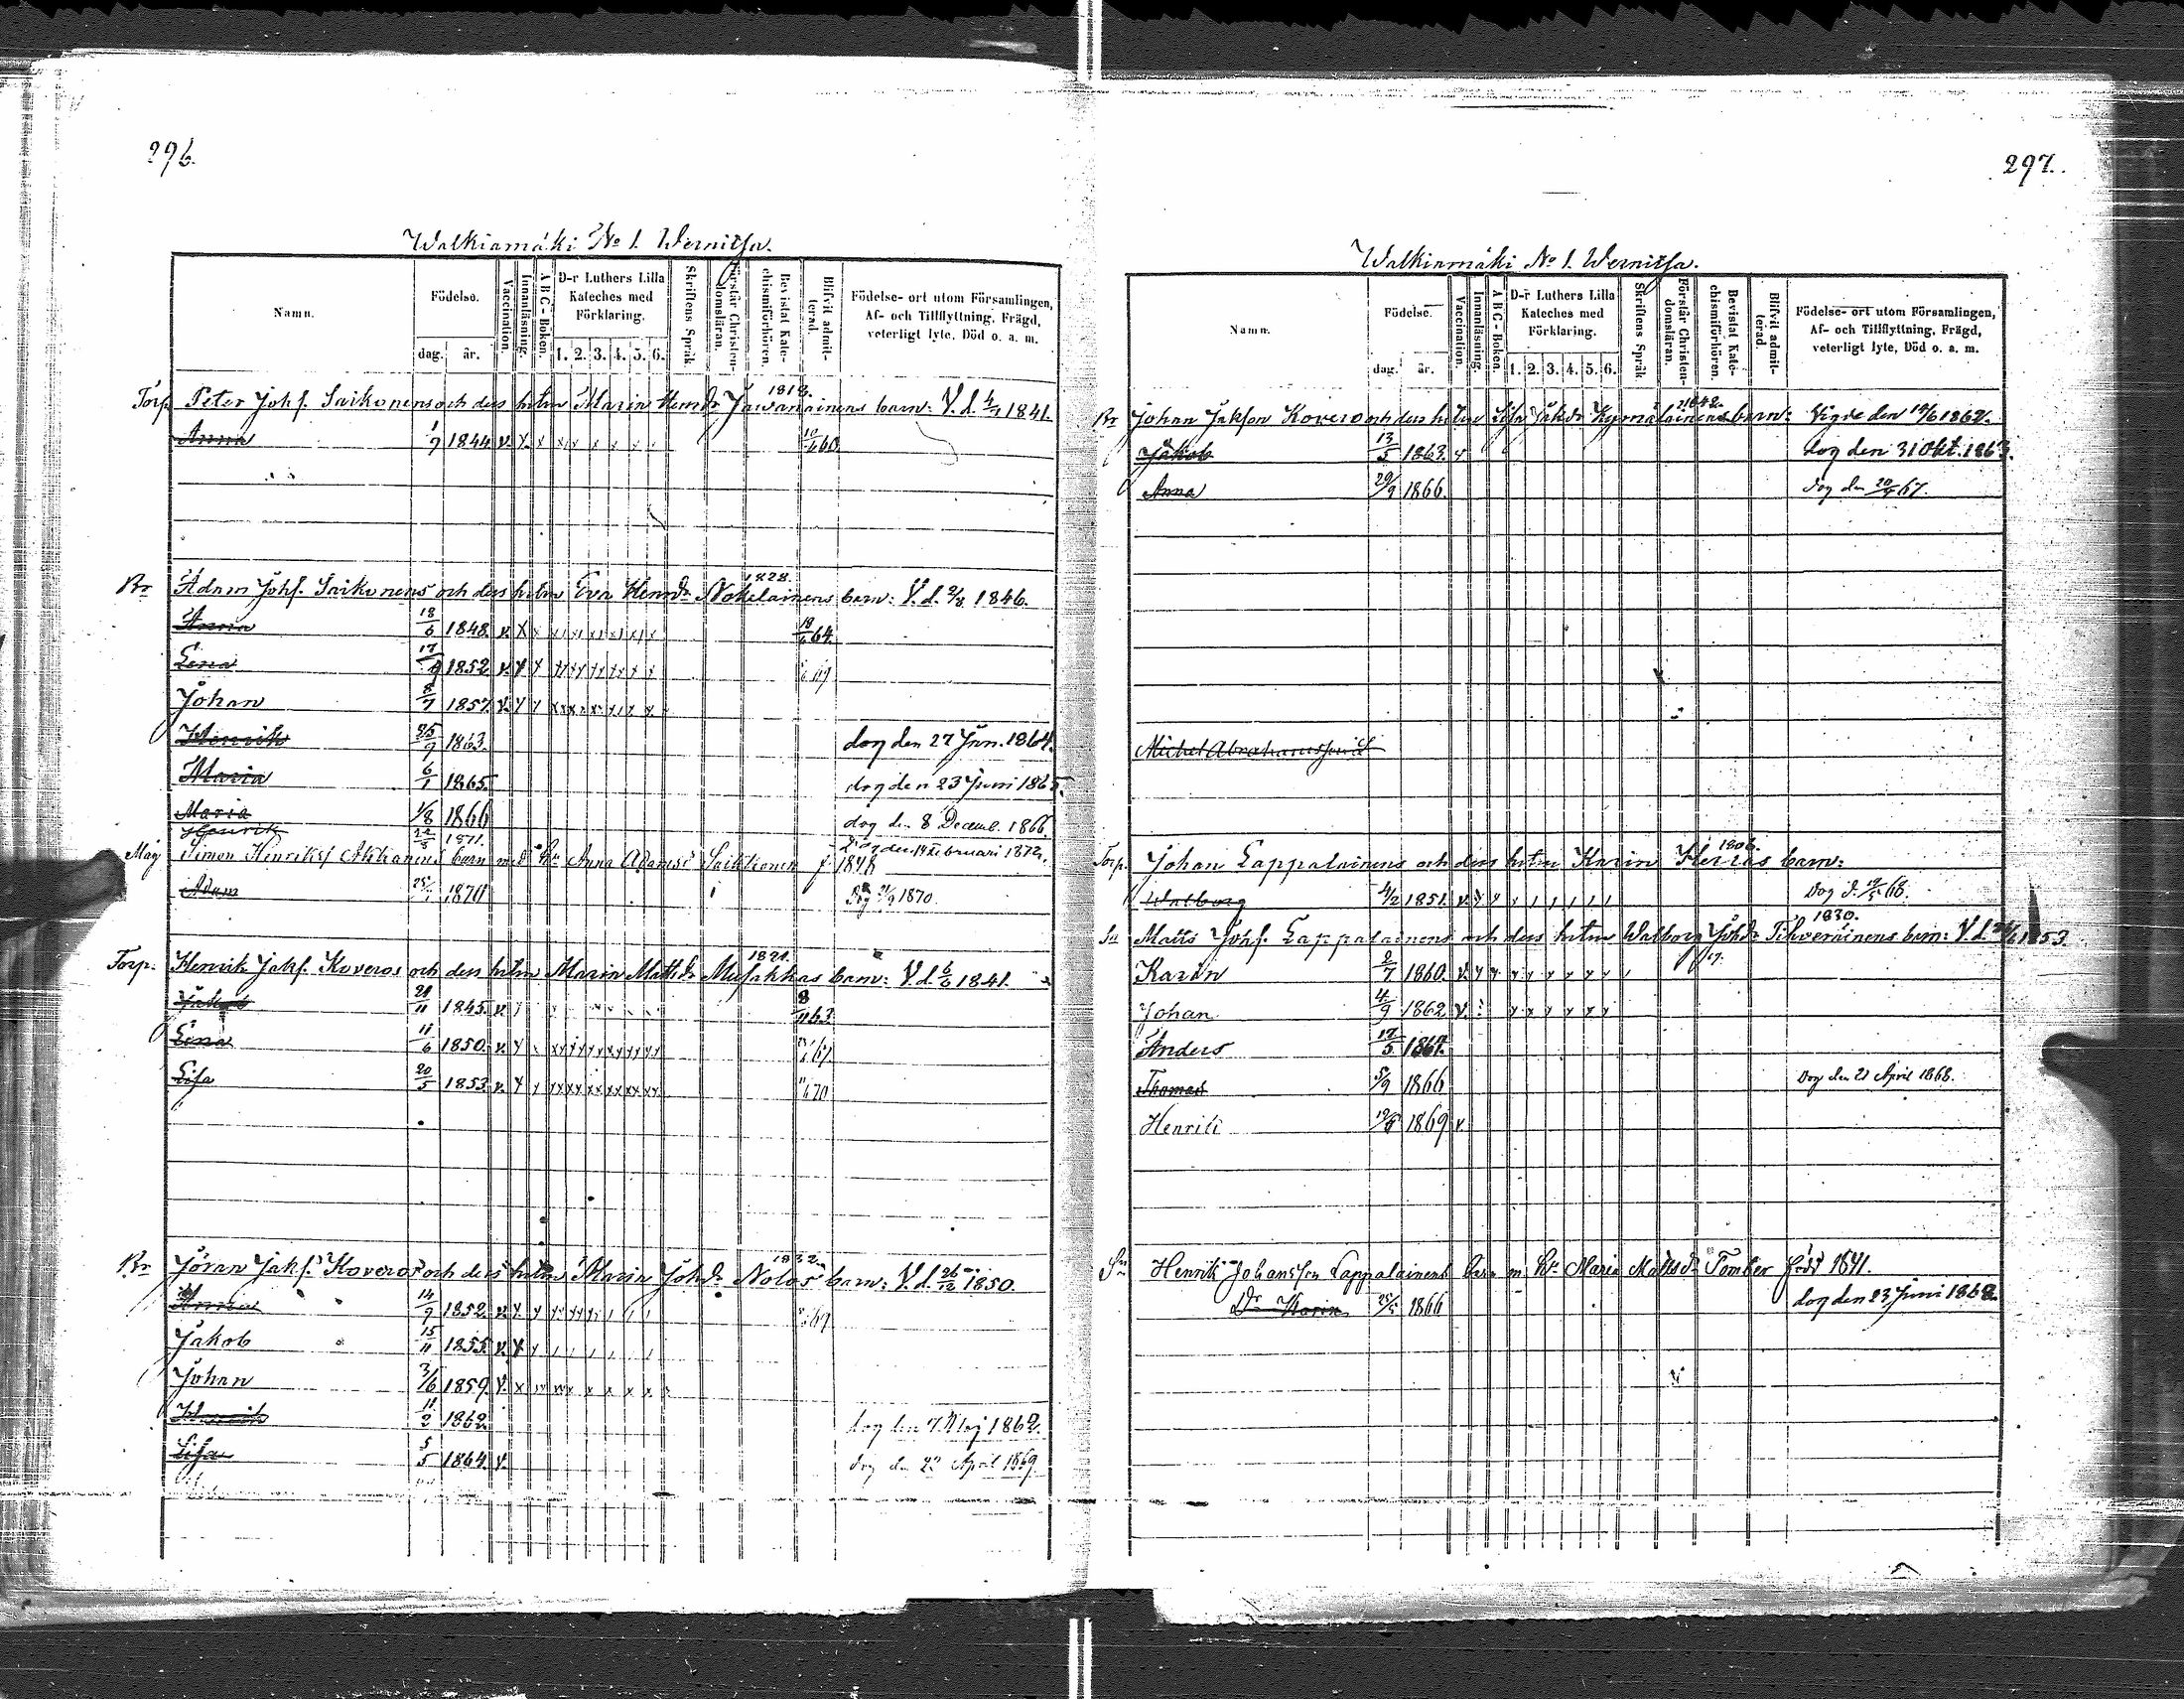 296.
Walkiamäki No 1. Wernitsa.
Namn.
Födelse.
dag.
år.
Vaccination.
Innanläsning.
A B C - Boken.
D-r Luthers Lilla Kateches med Förklaring.
1. 2. 3. 4. 5. 6.
Skriftens Språk
Förstår Christendomsläran.
Bevistat Katechismiförhören.
Blifvit admitterad.
Födelse- ort utom Församlingen, Af- och Tillflyttning, Frägd, veterligt lyte, Död o. a. m.
1818.
Torp. Peter Johs. Saikonens och dess hstru Maria Henrdr Jawanainens barn: V. d. 4/4 1841.
Anna 1/9 1844 10/6 60.
1828.
Br Adam Johs. Saikonens och dess hstru Eva Henrdr Nokelainens barn: V. d. 2/8 1846.
Anna 18/6 1848. 19/6 64.
Lena 17/9 1852
Johan 8/7 1857.
Henrik 25/9 1863. dog den 27 Jan. 1864.
Maria 6/1 1865. dog den 23 Juni 1865.
Maria 1/8 1866 dog den 8 Decemb. 1866.
Henrik 1871. Dog den 14 Februari 1872.
Måg Simon Henrikss Akkanens barn med Hu Anna Adamsd Saikkonen f 1848
Adam 1870 Dog 1870.
1821.
Torp. Henrik Jaks. Koveros och dess hstru Maria Mattsdr Musakkas barn: V. d. 6/6 1841.
Jakob 21/11 1845. 8/11 63.
Lena 11/6 1850.
Lisa 20/5 1853. 70
1832.
Br Jöran Jaks. Koveros och dess hstru Maria Johdr Nolos barn: V. d. 26/12 1850.
Anna 14/9 1852. 69.
Jakob 15/11 1855.
Johan 3/6 1859.
Henrik 11/2 1862. dog den 7 Maj 1862.
Lisa 5/5 1864. dog den 22 April 1869.
297.
Walkiamäki No 1. Wernitsa.
Namn.
Födelse.
dag.
år.
Vaccination.
Innanläsning.
A B C - Boken.
D-r Luthers Lilla Kateches med Förklaring.
1. 2. 3. 4. 5. 6.
Skriftens Språk
Förstår Christendomsläran.
Bevistat Katechismiförhören.
Blifvit admitterad.
Födelse- ort utom Församlingen, Af- och Tillflyttning, Frägd, veterligt lyte, Död o. a. m.
1842.
Br Johan Jakson Koveros och dess hstru Lisa Jakdr Kyrmälainens barn: Vigde den 1862.
Jakob 13/5 1863. dog den 31 Okt. 1863.
Anna 29/9 1866. dog den 67.
Michel Abrahamsson
1806.
Torp. Johan Lappalainens och dess hstru Karin Heiras barn:
Walborg 4/2 1851. Dog d. 68.
1830.
So Matts Johs. Lappalainens och dess hstru Walborg Johdr Tihverainens barn: V. d. 1853
Karin 2/7 1860.
Johan 4/9 1862
Anders 17/5 1864.
Thomas 5/9 1866 Dog den 21 April 1868.
Henrik 1869
Sn Henrik Johansson Lappalainens barn m. Hu Maria Mattsdr Tomter född 1841.
Dr Karin 25/5 1866 dog den 23 Juni 1868.